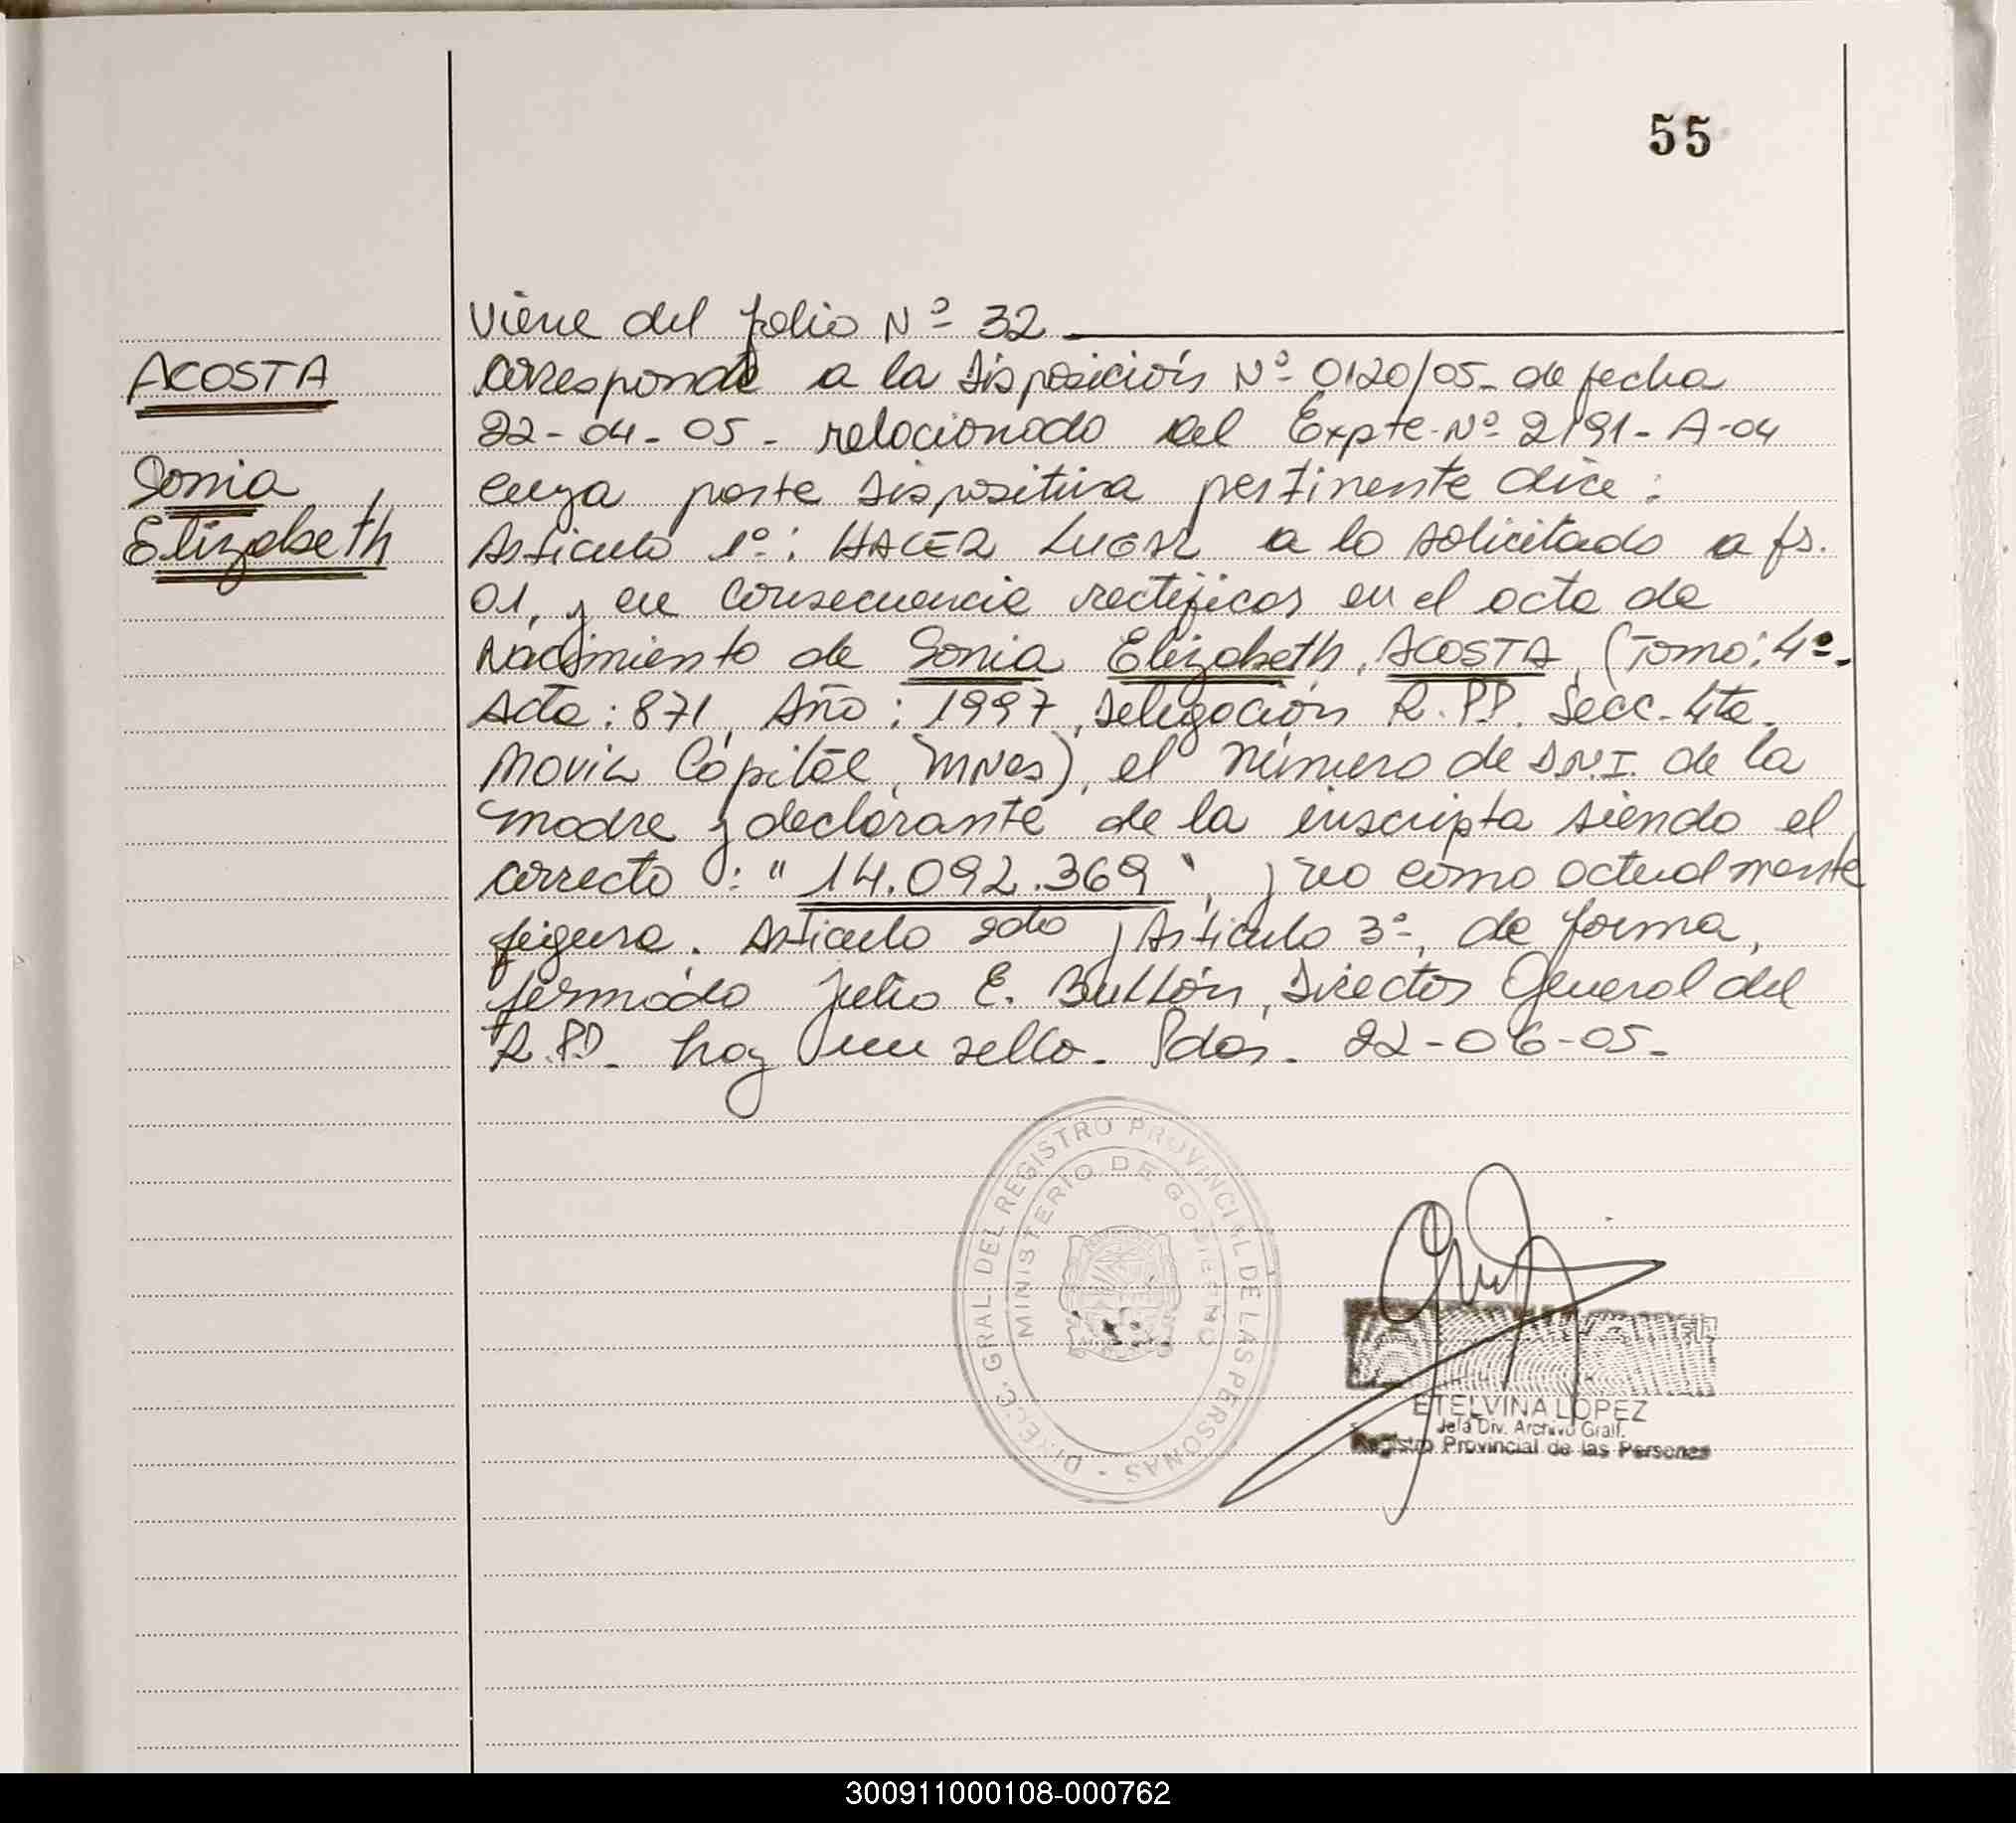 55
Viene del folio Nº 32
ACOSTA
Corresponde a la Disposición Nº 0120/05- de fecha
22-04-05- relacionado al Expte-Nº 2191-A-04
Sonia
cuya parte dispositiva pertinente dice:
Elizabeth
Artículo 1º: HACER LUGAR a lo solicitado a fs.
01, y en consecuencia rectificar en el acta de
Nacimiento de Sonia Elizabeth, ACOSTA, (Tomo: 4º-
Acta: 871, Año: 1997, Delegación R.P.P. Secc. 4ta.
Movil Capital, Mnes), el número de D.N.I. de la
madre y declarante de la inscripta siendo el
correcto: "14.092.369", y no como actualmente
figura. Artículo 2do y Artículo 3º, de forma,
firmado Julio E. Bullón, Director General del
R.P.P. hay un sello. Pdas. 22-06-05.
DIREC. GRAL. DEL REGISTRO PROVINCIAL DE LAS PERSONAS
MINISTERIO DE GOBIERNO
ETELVINA LOPEZ
Jefa Div. Archivo Gral.
Registro Provincial de las Personas
300911000108-000762